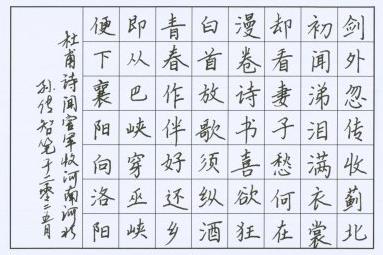 剑外忽传收蓟北
初闻涕泪满衣裳
却看妻子愁何在
漫卷诗书喜欲狂
白首放歌须纵酒
青春作伴好还乡
即从巴峡穿巫峡
便下襄阳向洛阳
杜甫诗闻官军收河南河北
孙传智笔于二零二五月